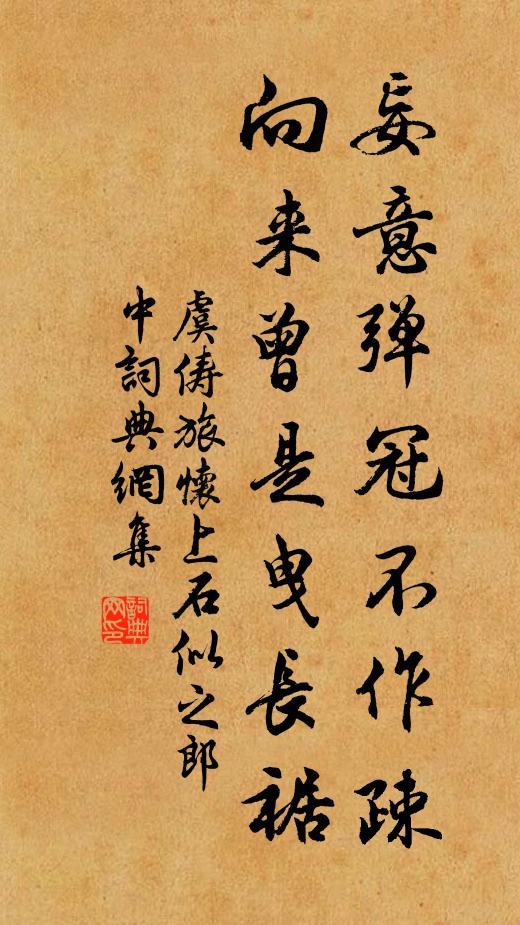 妄意弹冠不作疎
向来曾是曳長裾
虞俦旅懷上石似之郎
中詞典網集
詞典
网印